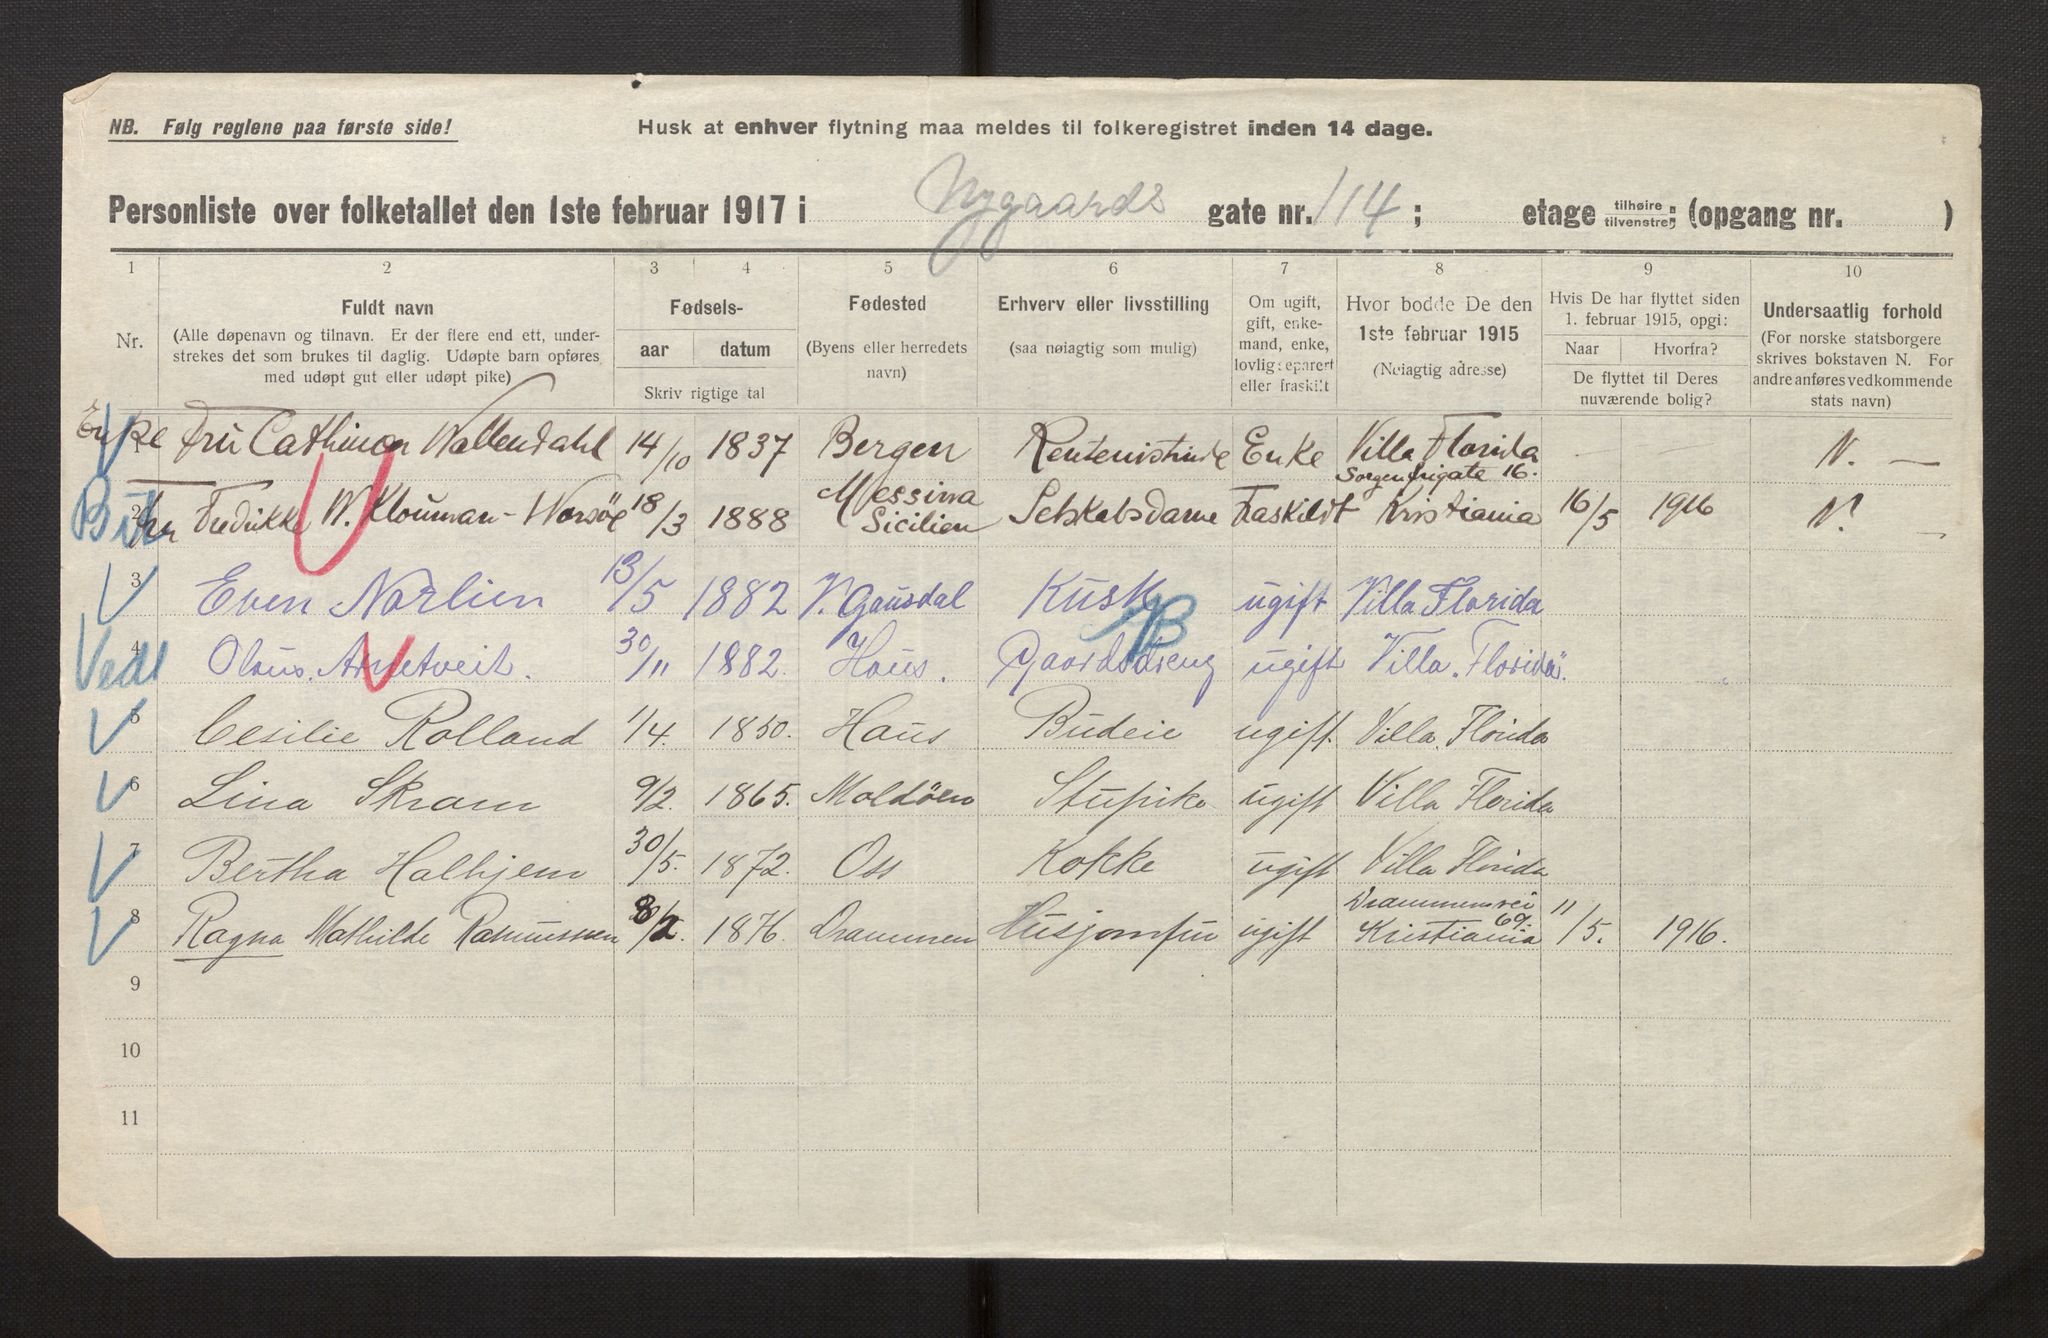 NB. Følg reglene paa første side!
Husk at enhver flytning maa meldes til folkeregistret inden 14 dage.
Personliste over folketallet den 1ste februar 1917 i Nygaards gate nr. 114; etage tilhøire tilvenstre; (opgang nr. )
1 2 3 4 5 6 7 8 9 10
Nr.
Fuldt navn
(Alle døpenavn og tilnavn. Er der flere end ett, under-
strekes det som brukes til daglig. Udøpte barn opføres
med udøpt gut eller udøpt pike)
Fødsels-
aar datum
Skriv rigtige tal
Fødested
(Byens eller herredets
navn)
Erhverv eller livsstilling
(saa nøiagtig som mulig)
Om ugift,
gift, enke-
mand, enke,
lovlig separert
eller fraskilt
Hvor bodde De den
1ste februar 1915
(Nøiagtig adresse)
Hvis De har flyttet siden
1. februar 1915, opgi:
Naar Hvorfra?
De flyttet til Deres
nuværende bolig?
Undersaatlig forhold
(For norske statsborgere
skrives bokstaven N. For
andre anføres vedkommende
stats navn)
Enke 1 Fru Cathinca Wallendahl 14/10 1837 Bergen Rentenistinde Enke Villa Florida — — N. —
Sorgenfrigate 16.
2 Fru Fredrikke W. Klouman-Worsöe 18/3 1888 Messina Sicilien Selskabsdame Fraskildt Kristiania 16/5 1916 N. —
3 Even Norlien 13/5 1882 V. Gausdal Kusk ugift Villa Florida
Vedl 4 Olaus. Arnetveit. 30/11 1882. Haus. Gaardsdreng ugift Villa. Florida".
5 Cesilie Rolland 1/4. 1850. Haus Budeie ugift. Villa. Florida
6 Lina Skram 9/2. 1865. Moldöen Stupike ugift Villa Florida
7 Bertha Halhjem 30/5. 1872. Oss Kokke ugift Villa Florida
8 Ragna Mathilde Rasmussen 8/2. 1876. Drammen Husjomfru ugift Drammensvei 69. Kristiania 11/5. 1916.
9
10
11